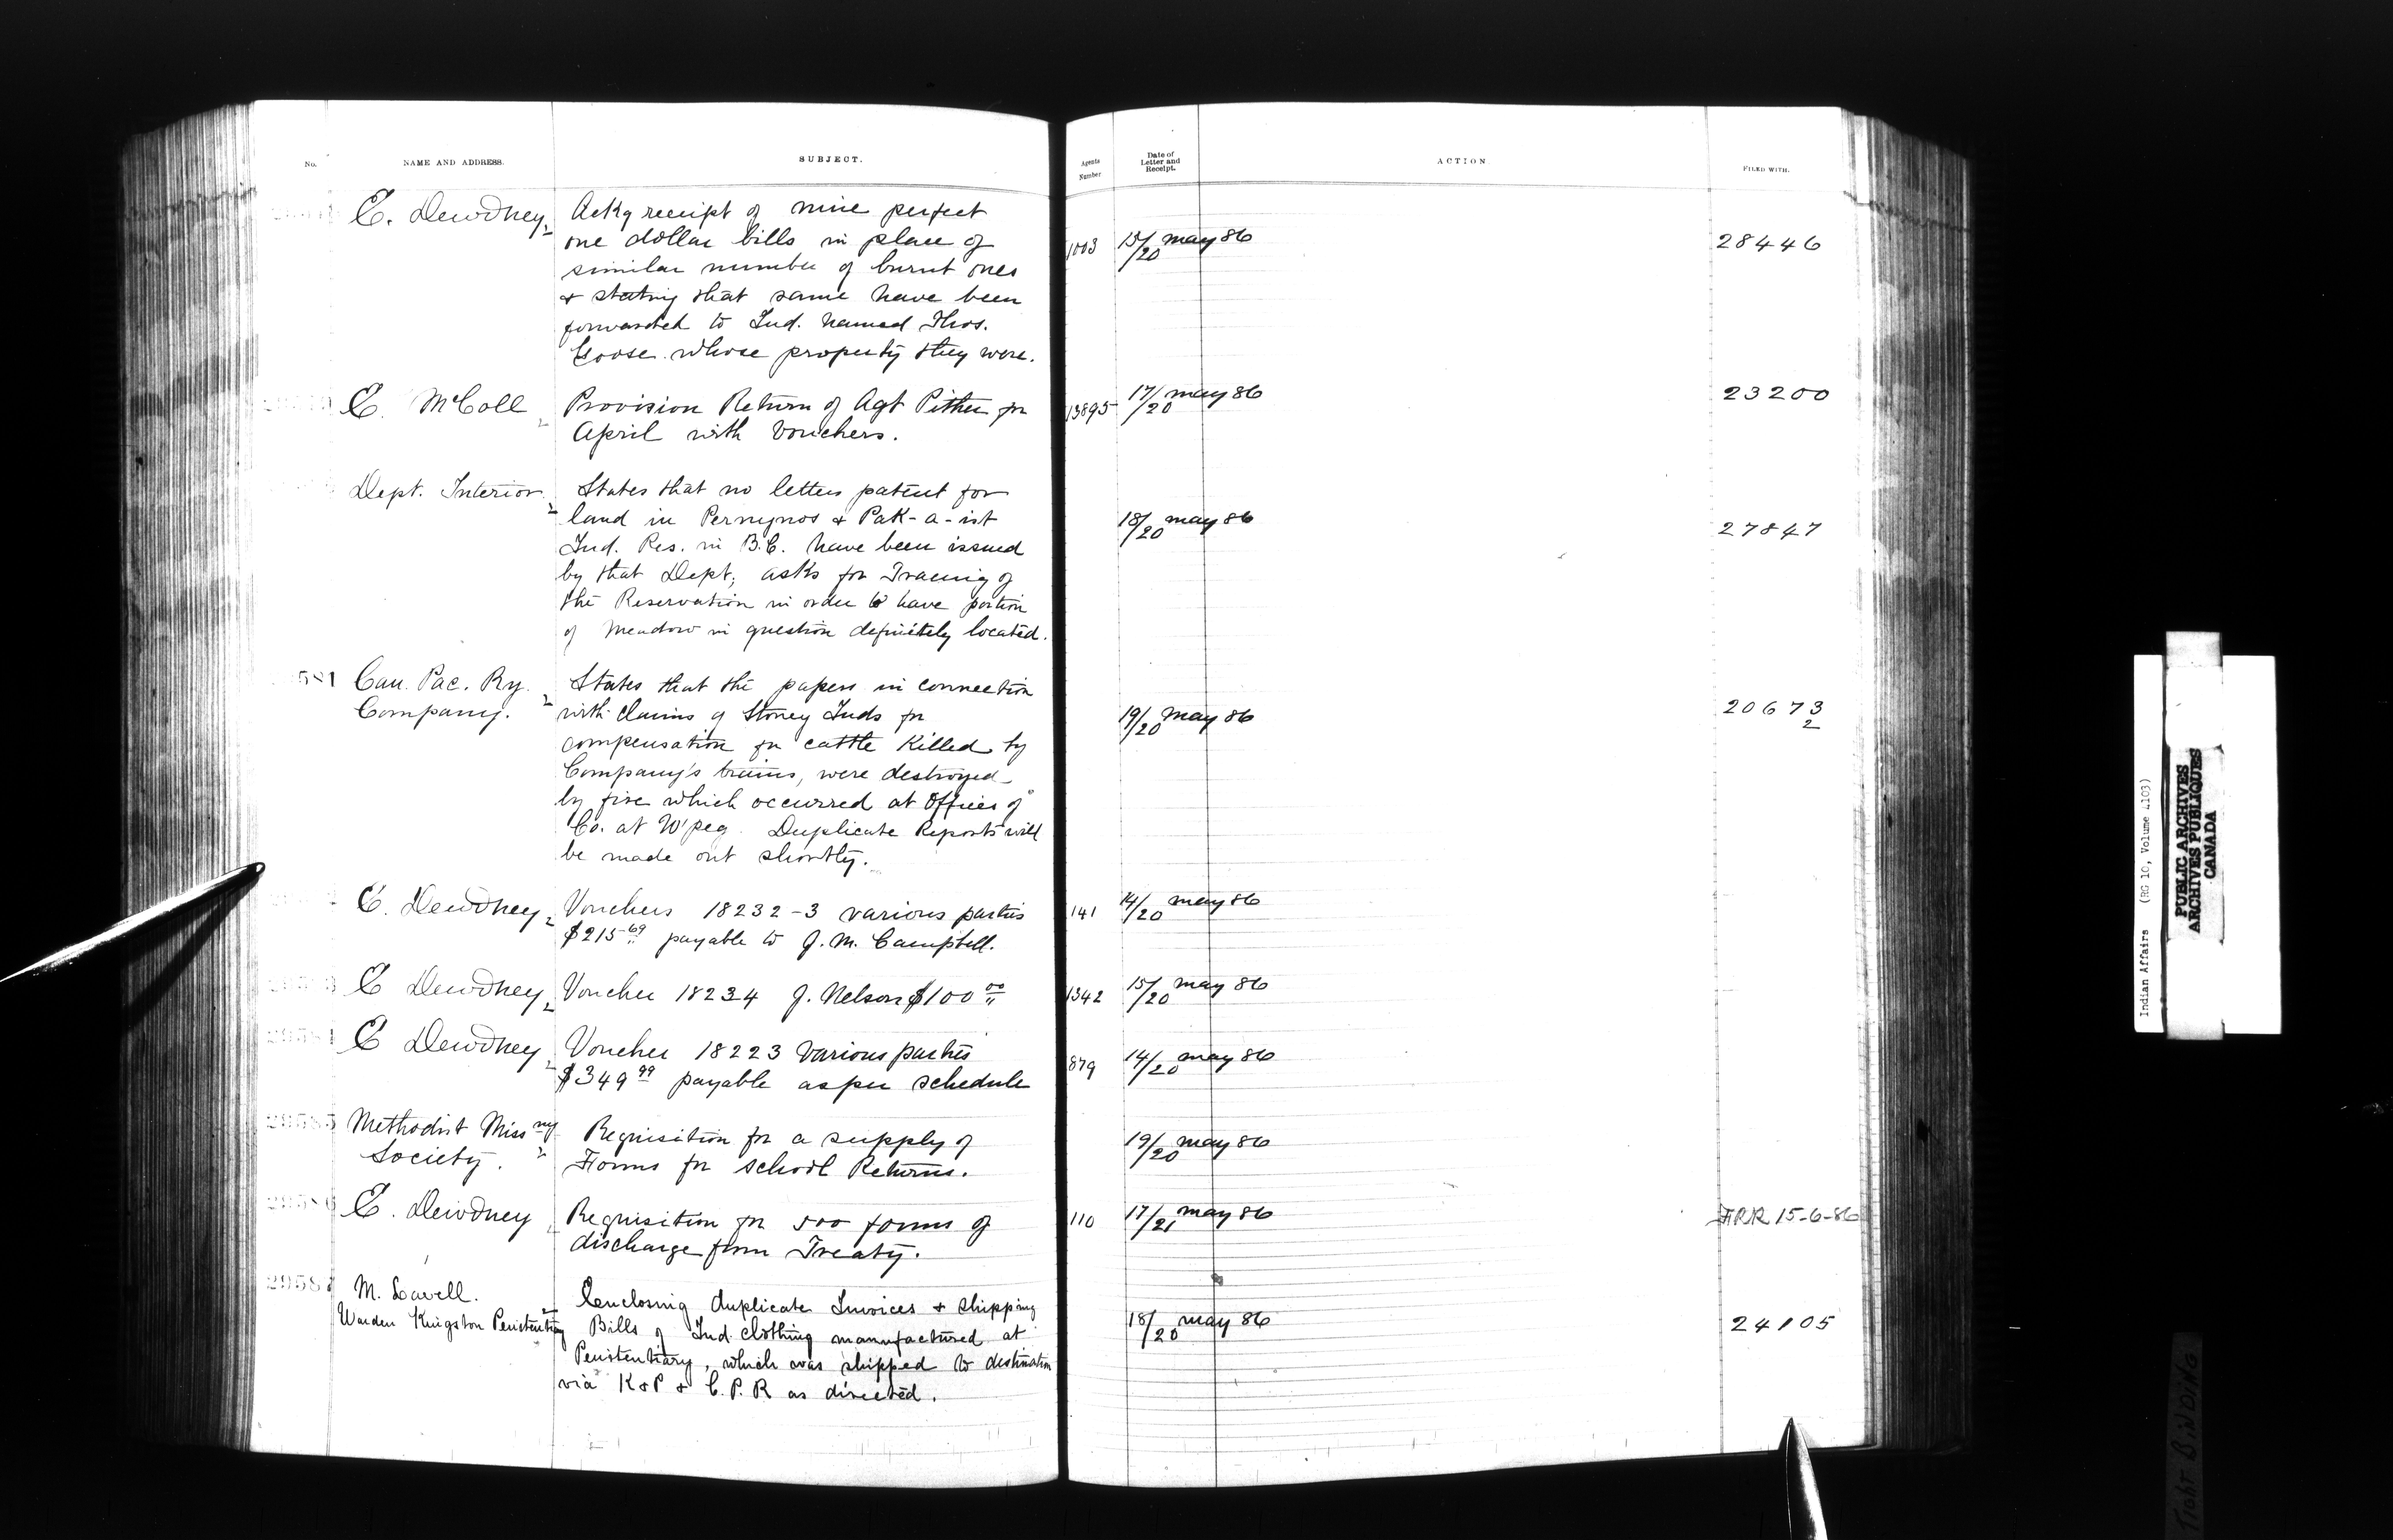 No. NAME AND ADDRESS. SUBJECT. Agents Number Date of Letter and Receipt. ACTION FILED WITH.
E. Dewdney Ackg receipt of nine perfect
one dollar bills in place of 1003 15/20 May 86 28446
similar number of burnt ones
& stating that same have been
forwarded to Ind. named Thos.
Goose whose property they were.
E. McColl Provision Return of Agt Pither for 13895 17/20 May 86 23200
April with Vouchers.
Dept. Interior States that no letters patent for
land in Pernynos & Pak-a-ist 18/20 May 86 27847
Ind. Res. in B.C. have been issued
by that Dept; asks for Tracing of
the Reservation in order to have portion
of Meadow in question definitely located.
581 Can. Pac. Ry. States that the papers in connection
Company. with claims of Stoney Inds for 19/20 May 86 20673/2
compensation for cattle killed by
Company's trains, were destroyed
by fire which occurred at Offices of
Co. at W'peg. Duplicate Reports will
be made out shortly.
E. Dewdney Vouchers 18232-3 various parties 141 14/20 May 86
$215 69 payable to J. M. Campbell.
E Dewdney Voucher 18234 J. Nelson $100 00 1342 15/20 May 86
29584 E Dewdney Voucher 18223 Various parties 879 14/20 May 86
$349 99 payable as per schedule
29585 Methodist Missny Requisition for a supply of 19/20 May 86
Society. Forms for School Returns.
29586 E. Dewdney Requisition for 500 forms of 110 17/21 May 86 FRR 15-6-86
discharge from Treaty.
29587 M. Lavell. Enclosing duplicate Invoices & Shipping
Warden Kingston Penitentiary Bills of Ind. clothing manufactured at 18/20 May 86 24105
Penitentiary, which was shipped to destination
via K & P & C. P. R as directed.
Indian Affairs (RG 10, Volume 4103)
PUBLIC ARCHIVES
ARCHIVES PUBLIQUES
CANADA
TIGHT BINDING